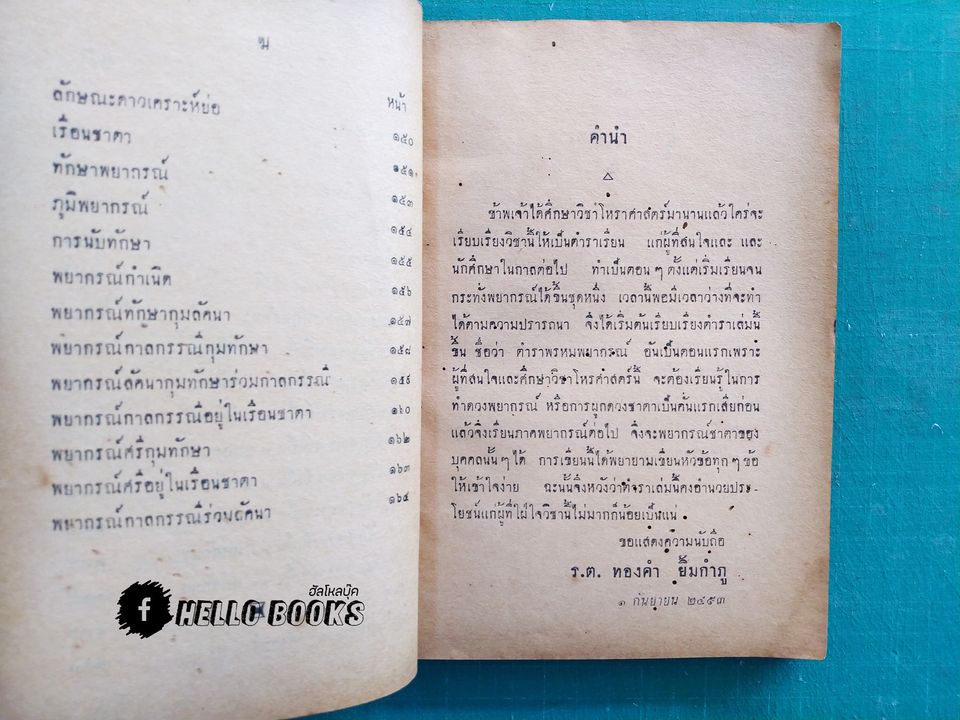 ฆ
หน้า
ลักษณะดาวเคราะห์ย่อ ๑๕๐
เรือนชาตา ๑๕๑
ทักษาพยากรณ์ ๑๕๓
ภูมิพยากรณ์ ๑๕๔
การนับทักษา ๑๕๕
พยากรณ์กำเนิด ๑๕๖
พยากรณ์ทักษากุมลัคนา ๑๕๗
พยากรณ์กาลกรรณีกุมทักษา ๑๕๘
พยากรณ์ลัคนากุมทักษาร่วมกาลกรรณี ๑๕๙
พยากรณ์กาลกรรณีอยู่ในเรือนชาตา ๑๖๐
พยากรณ์ศรีกุมทักษา ๑๖๒
พยากรณ์ศรีอยู่ในเรือนชาตา ๑๖๓
พยากรณ์กาลกรรณีร่วมลัคนา ๑๖๔
ฮัลโหลบุ๊ค
f HELLO BOOKS
คำนำ
ข้าพเจ้าได้ศึกษาวิชาโหราศาสตร์มานานแล้วใคร่จะ
เรียบเรียงวิชานี้ให้เป็นตำราเรียน แก่ผู้ที่สนใจและ และ
นักศึกษาในกาลต่อไป ทำเป็นตอน ๆ ตั้งแต่เริ่มเรียนจน
กระทั่งพยากรณ์ได้ขึ้นชุดหนึ่ง เวลานี้พอมีเวลาว่างที่จะทำ
ได้ตามความปรารถนา จึงได้เริ่มต้นเรียบเรียงตำราเล่มนี้
ขึ้น ชื่อว่า ตำราพรหมพยากรณ์ อันเป็นตอนแรกเพราะ
ผู้ที่สนใจและศึกษาวิชาโหรศาสตร์นี้ จะต้องเรียนรู้ในการ
ทำดวงพยากรณ์ หรือการผูกดวงชาตาเป็นคั่นแรกเสียก่อน
แล้วจึงเรียนภาคพยากรณ์ต่อไป จึงจะพยากรณ์ชาตาของ
บุคคลนั้น ๆ ได้ การเขียนนี้ได้พยายามเขียนหัวข้อทุก ๆ ข้อ
ให้เข้าใจง่าย ฉะนั้นจึงหวังว่าตำราเล่มนี้คงอำนวยประ-
โยชน์แก่ผู้ที่ใฝ่ใจวิชานี้ไม่มากก็น้อยเป็นแน่
ขอแสดงความนับถือ
ร.ต. ทองคำ ยิ้มกำภู
๑ กันยายน ๒๔๙๓